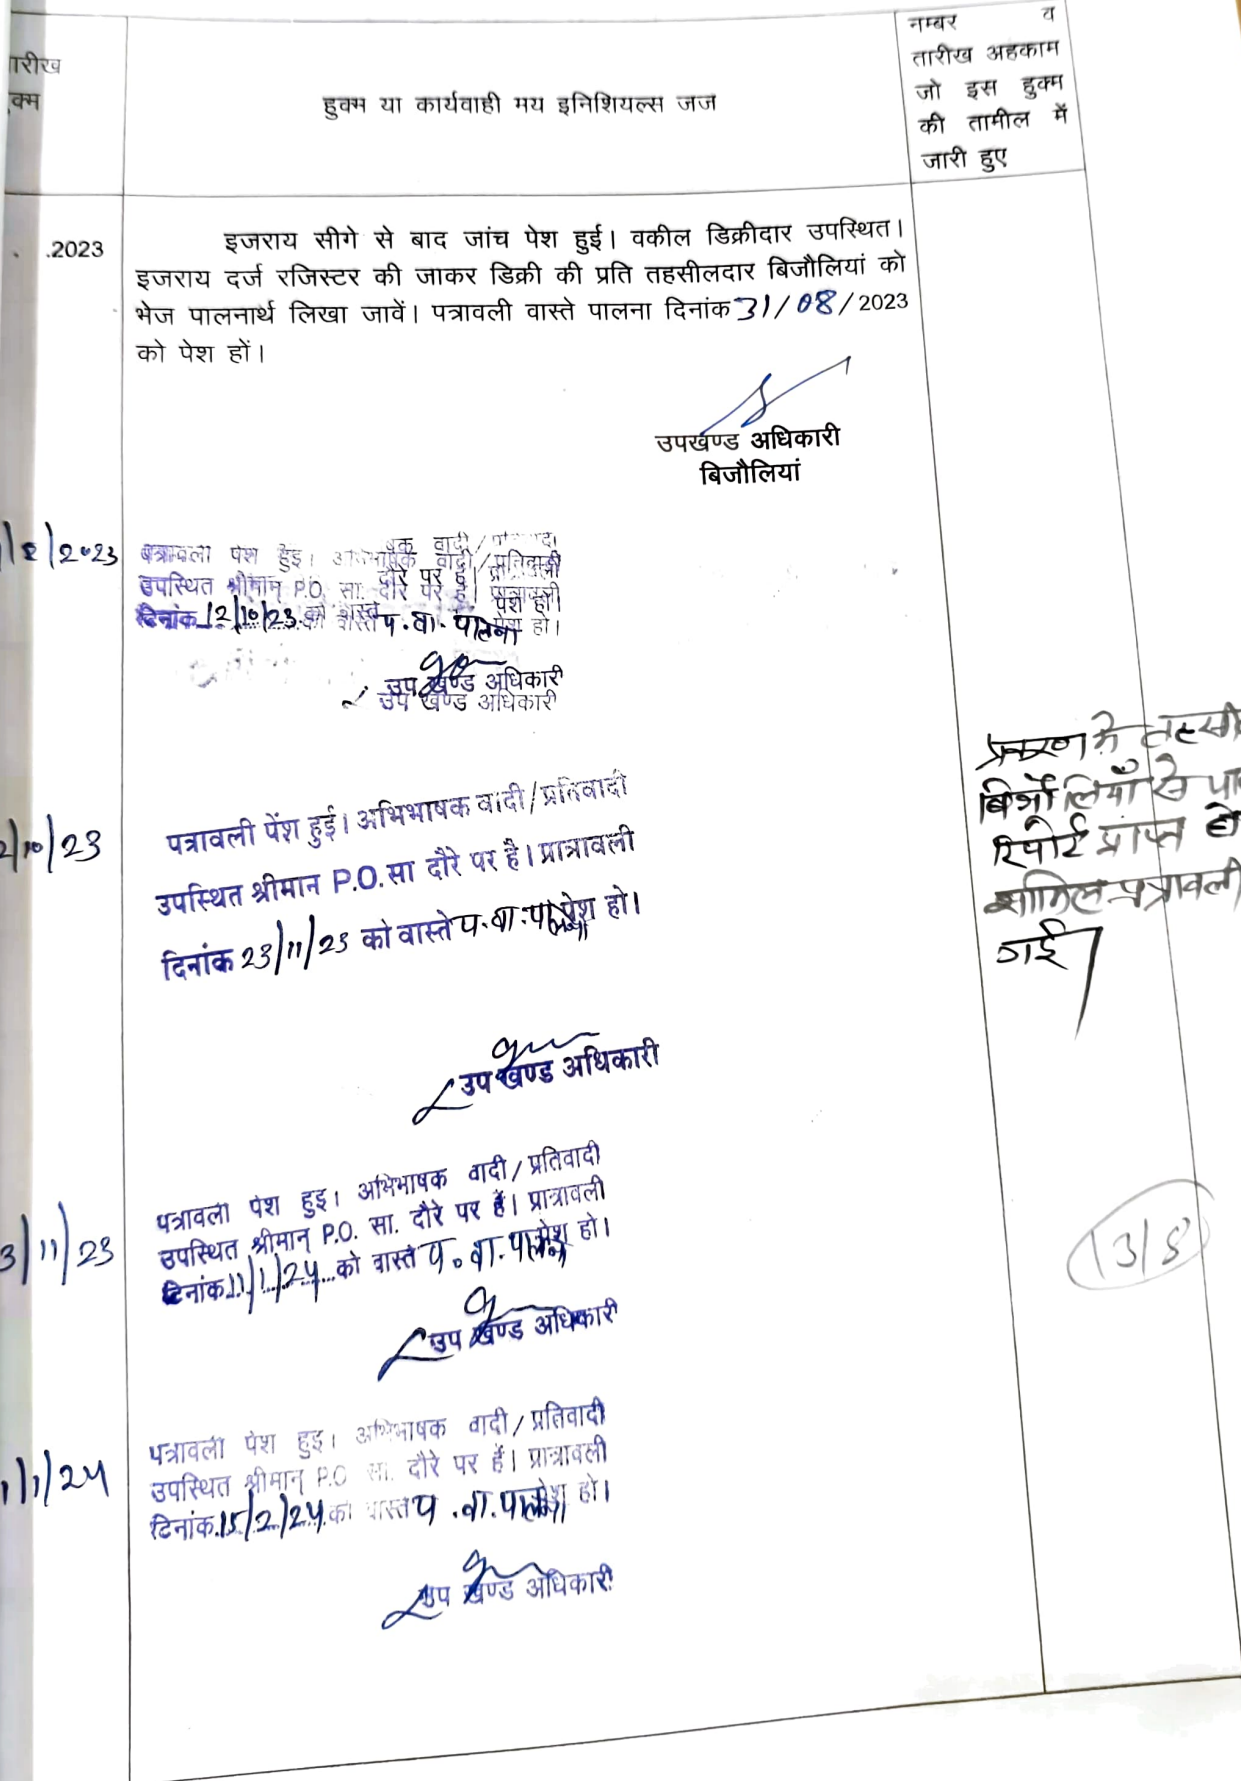 नम्बर व
तारीख अहकाम
जो इस हुक्म
की तामील में
जारी हुए
ारीख
क्म
हुक्म या कार्यवाही मय इनिशियल्स जज
.2023
इजराय सीगे से बाद जांच पेश हुई। वकील डिक्रीदार उपस्थित।
इजराय दर्ज रजिस्टर की जाकर डिक्री की प्रति तहसीलदार बिजौलियां को
भेज पालनार्थ लिखा जावें। पत्रावली वास्ते पालना दिनांक 31/08/2023
को पेश हों।
उपखण्ड अधिकारी
बिजौलियां
/8/2023
पत्रावली पेश हुई। अभिभाषक वादी/प्रतिवादी
उपस्थित श्रीमान् P.O. सा. दौरे पर है। प्रात्रावली
दिनांक 12/10/23 को वास्ते प.वा.पालना पेश हो।
उप खण्ड अधिकारी
उप खण्ड अधिकारी
2/10/23
पत्रावली पेंश हुई। अभिभाषक वादी/प्रतिवादी
उपस्थित श्रीमान P.O.सा दौरे पर है। प्रात्रावली
दिनांक 23/11/23 को वास्ते प.वा.पालना पेश हो।
उप खण्ड अधिकारी
प्रकरण में तहसी
बिजौलियाँ से पा
रिपोर्ट प्राप्त हो
शामिल पत्रावली
गई।
3/11/23
पत्रावली पेश हुई। अभिभाषक वादी/प्रतिवादी
उपस्थित श्रीमान् P.O. सा. दौरे पर हैं। प्रात्रावली
दिनांक 11/1/24 को वास्ते प.वा.पालना पेश हो।
उप खण्ड अधिकारी
13/8
1/1/24
पत्रावली पेश हुई। अभिभाषक वादी/प्रतिवादी
उपस्थित श्रीमान् P.O सा. दौरे पर हैं। प्रात्रावली
दिनांक 15/2/24 को वास्ते प.वा.पालना पेश हो।
उप खण्ड अधिकारी